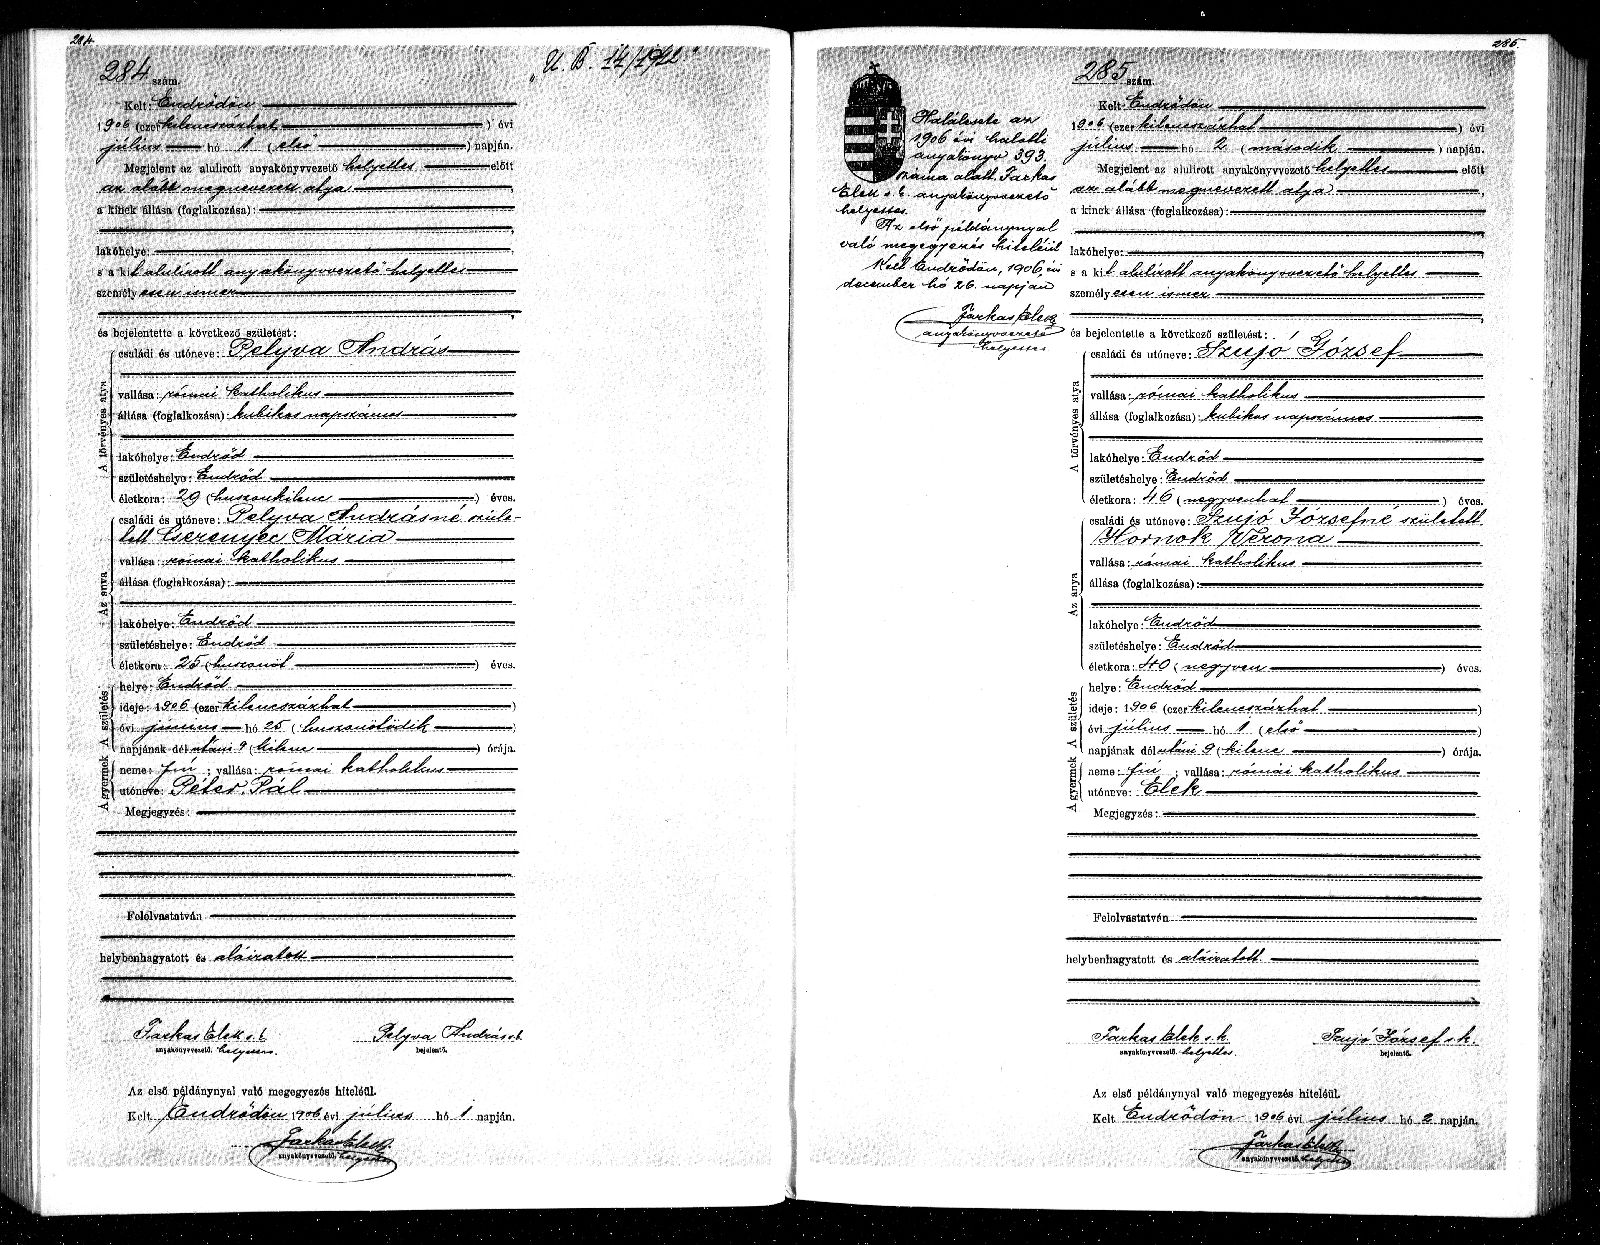 284.
284 szám.
„U. B. 14/1912"
Kelt: Endrődön
1906 (ezerkilencszázhat) évi
július hó 1 (első) napján.
Megjelent az alulirott anyakönyvvezető helyettes előtt
az alább megnevezett atya
a kinek állása (foglalkozása):
lakóhelye:
s a kit alulírott anyakönyvvezető helyettes
személyesen ismer
és bejelentette a következő születést:
A törvényes atya
családi és utóneve: Pelyva András
vallása: római katholikus
állása (foglalkozása): kubikos napszámos
lakóhelye: Endrőd
születéshelye: Endrőd
életkora: 29 (huszonkilenc) éves.
Az anya
családi és utóneve: Pelyva Andrásné szüle-
tett Cserenyec Mária
vallása: római katholikus
állása (foglalkozása):
lakóhelye: Endrőd
születéshelye: Endrőd
életkora: 25 (huszonöt) éves.
A születés
helye: Endrőd
ideje: 1906 (ezerkilencszázhat)
évi június hó 25 (huszonötödik)
napjának délutáni 9 (kilenc) órája.
A gyermek
neme: fiú; vallása: római katholikus
utóneve: Péter Pál
Megjegyzés:
Felolvastatván
helybenhagyatott és aláiratott
Farkas Elek s. k. Pelyva András s. k.
anyakönyvvezető. helyettes. bejelentő.
Az első példánynyal való megegyezés hiteléül.
Kelt Endrődön 1906 évi július hó 1 napján.
Farkas Elek
anyakönyvvezető. helyettes
285.
285 szám.
Halálesete az
1906 évi halotti
anyakönyv 393.
száma alatt. Farkas
Elek s. k. anyakönyvvezető
helyettes.
Az első példánynyal
való megegyezés hiteléül
Kelt Endrődön, 1906 évi
december hó 26. napján
Farkas Elek
anyakönyvvezető
helyettes
Kelt: Endrődön
1906 (ezerkilencszázhat) évi
július hó 2 (második) napján.
Megjelent az alulirott anyakönyvvezető helyettes előtt
az alább megnevezett atya
a kinek állása (foglalkozása):
lakóhelye:
s a kit alulírott anyakönyvvezető helyettes
személyesen ismer
és bejelentette a következő születést:
A törvényes atya
családi és utóneve: Szujó József
vallása: római katholikus
állása (foglalkozása): kubikos napszámos
lakóhelye: Endrőd
születéshelye: Endrőd
életkora: 46 (negyvenhat) éves.
Az anya
családi és utóneve: Szujó Józsefné született
Hornok Verona
vallása: római katholikus
állása (foglalkozása):
lakóhelye: Endrőd
születéshelye: Endrőd
életkora: 40 (negyven) éves.
A születés
helye: Endrőd
ideje: 1906 (ezerkilencszázhat)
évi július hó 1 (első)
napjának délutáni 9 (kilenc) órája.
A gyermek
neme: fiú; vallása: római katholikus
utóneve: Elek
Megjegyzés:
Felolvastatván
helybenhagyatott és aláiratott
Farkas Elek s. k. Szujó József s. k.
anyakönyvvezető. helyettes. bejelentő.
Az első példánynyal való megegyezés hiteléül.
Kelt Endrődön 1906 évi július hó 2 napján.
Farkas Elek
anyakönyvvezető. helyettes